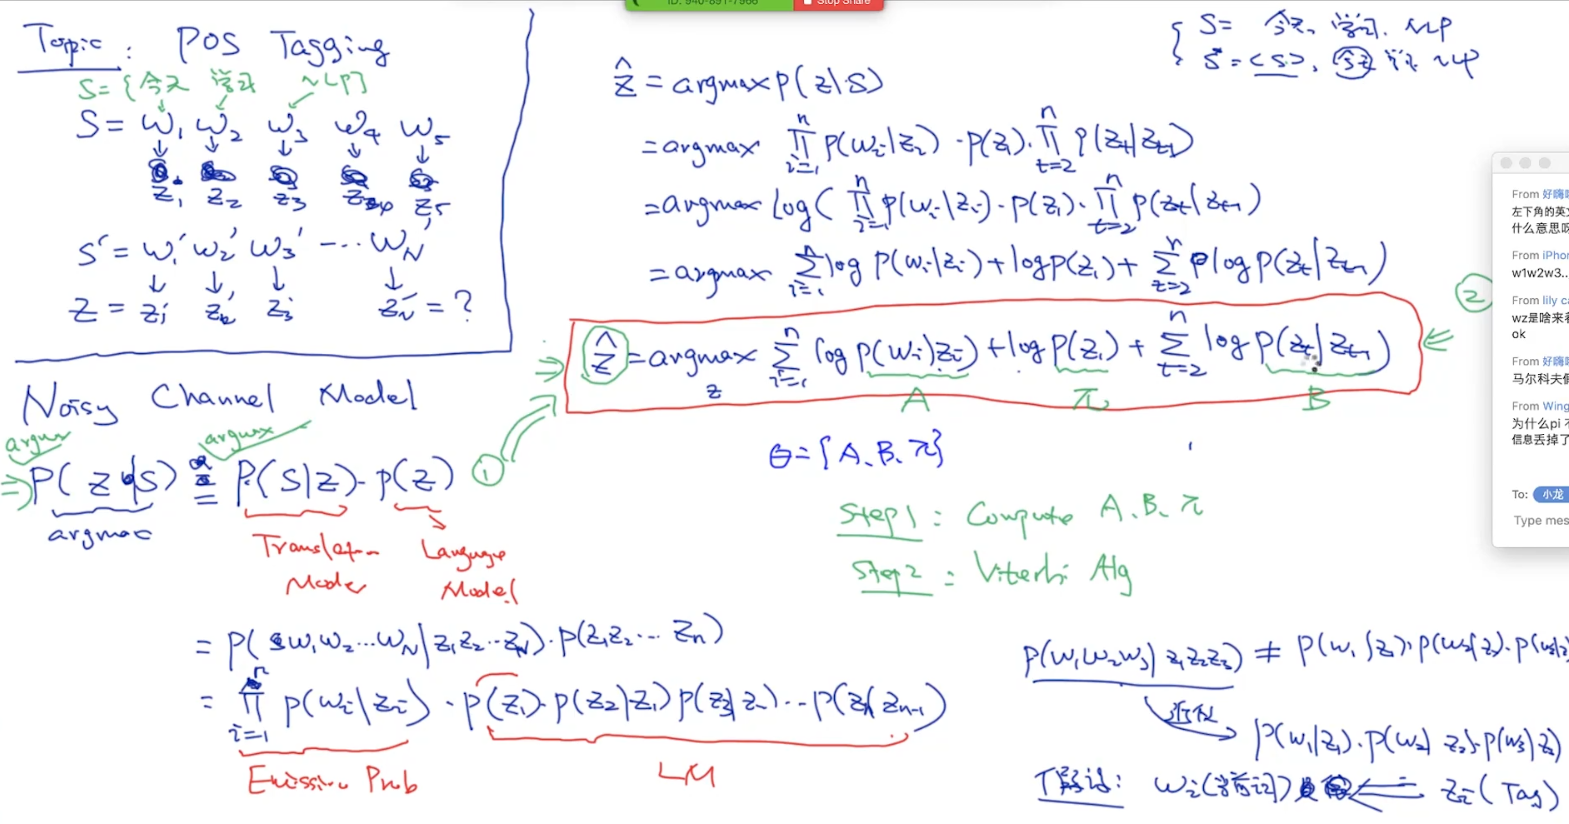 ID: 940-891-7966 Stop Share
Topic: POS Tagging
S={今天 学习 NLP}
S= w₁ w₂ w₃ w₄ w₅
z₁ z₂ z₃ z₄ z₅
S'= w₁' w₂' w₃' --- w_N'
Z = z₁' z₂' z₃' z_N' = ?
Noisy Channel Model
argmax argmax
P(z|S) = P(S|z)·p(z) ①
argmax
Translation Model
Language Model
= P(w₁w₂...w_N|z₁z₂...z_N)·p(z₁z₂... z_n)
= ∏ᵢ₌₁ⁿ p(wᵢ|zᵢ) · p(z₁)·p(z₂|z₁)p(z₃|z₂)...p(z_n|z_{n-1})
Emission Prob
LM
ẑ = argmax p(z|S)
=argmax ∏ᵢ₌₁ⁿ p(wᵢ|zᵢ)·p(z₁)·∏ₜ₌₂ⁿ p(z_t|z_{t-1})
=argmax log( ∏ᵢ₌₁ⁿ p(wᵢ|zᵢ)·p(z₁)·∏ₜ₌₂ⁿ p(z_t|z_{t-1})
=argmax ∑ᵢ₌₁ⁿ log p(wᵢ|zᵢ)+log p(z₁)+ ∑ₜ₌₂ⁿ log p(z_t|z_{t-1})
ẑ =argmax_z ∑ᵢ₌₁ⁿ log p(wᵢ|zᵢ)+log p(z₁) + ∑ₜ₌₂ⁿ log p(z_t|z_{t-1}) ②
A π B
θ={A、B、π}
Step1 : Compute A、B、π
Step2 : Viterbi Alg
S= 今天、学习、NLP
S=<S>、今天 学习 NLP
p(w₁w₂w₃|z₁z₂z₃) ≠ p(w₁|z₁)·p(w₂|z₂)·p(w₃|z
近似
p(w₁|z₁)·p(w₂|z₂)·p(w₃|z₃)
假设: wᵢ(当前词) ⇐ zᵢ(Tag)
From 好嗨
左下角的英文
什么意思
From iPhon
w1w2w3..
From lily ca
wz是啥来
ok
From 好嗨
马尔科夫
From Wing
为什么pi 不
信息丢掉了
To: 小龙
Type mes